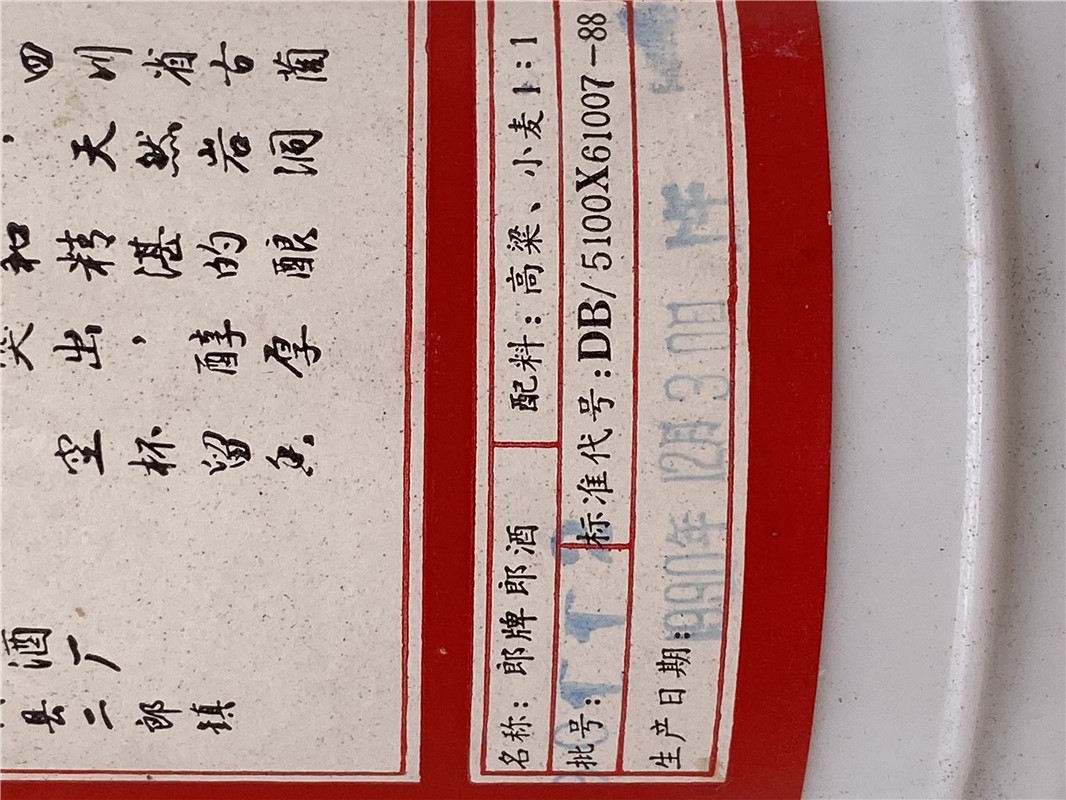 四川省古蔺
，天然岩洞
和精湛的酿
突出，醇厚
空杯留香。
酒厂
县二郎镇
名称：郎牌郎酒 配料：高粱、小麦1：1
批号： 标准代号：DB/5100X61007-88
生产日期：1990年12月30日